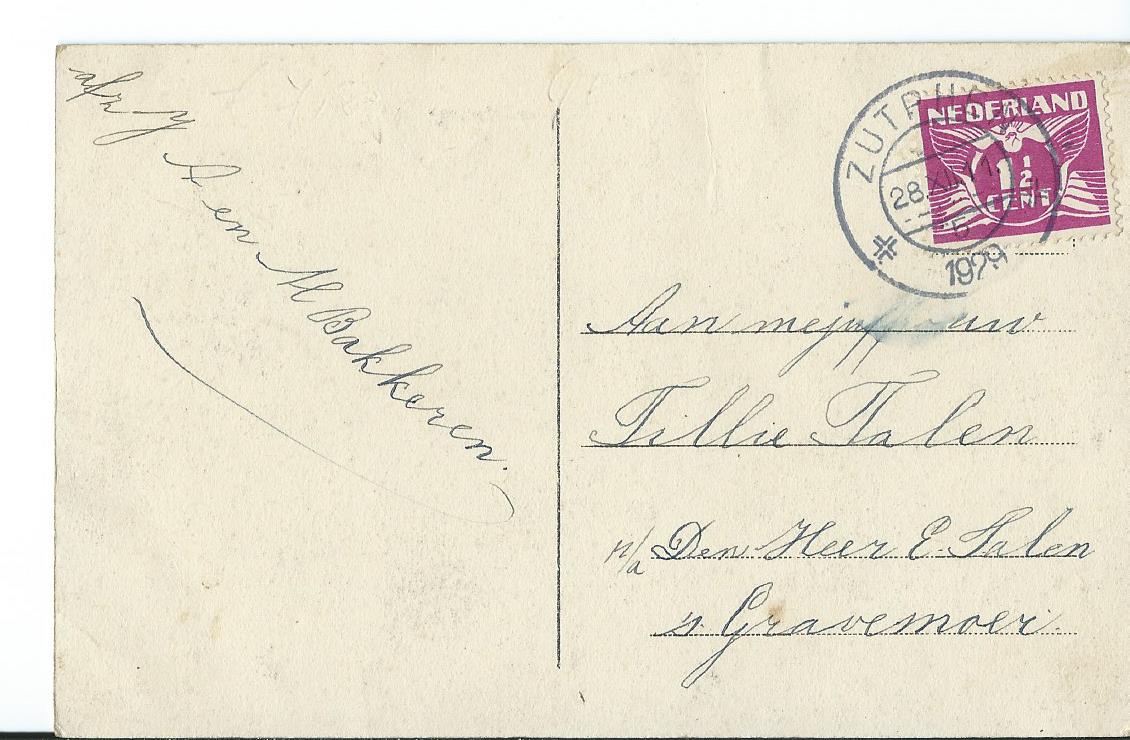 afz Y den H Bakkeren.
ZUTPHEN
28.XII.11
5
1929
NEDERLAND
1½
CENT
Aan mejuffrouw
Tillie Talen
p/a Den Heer E. Talen
's Gravemoer.